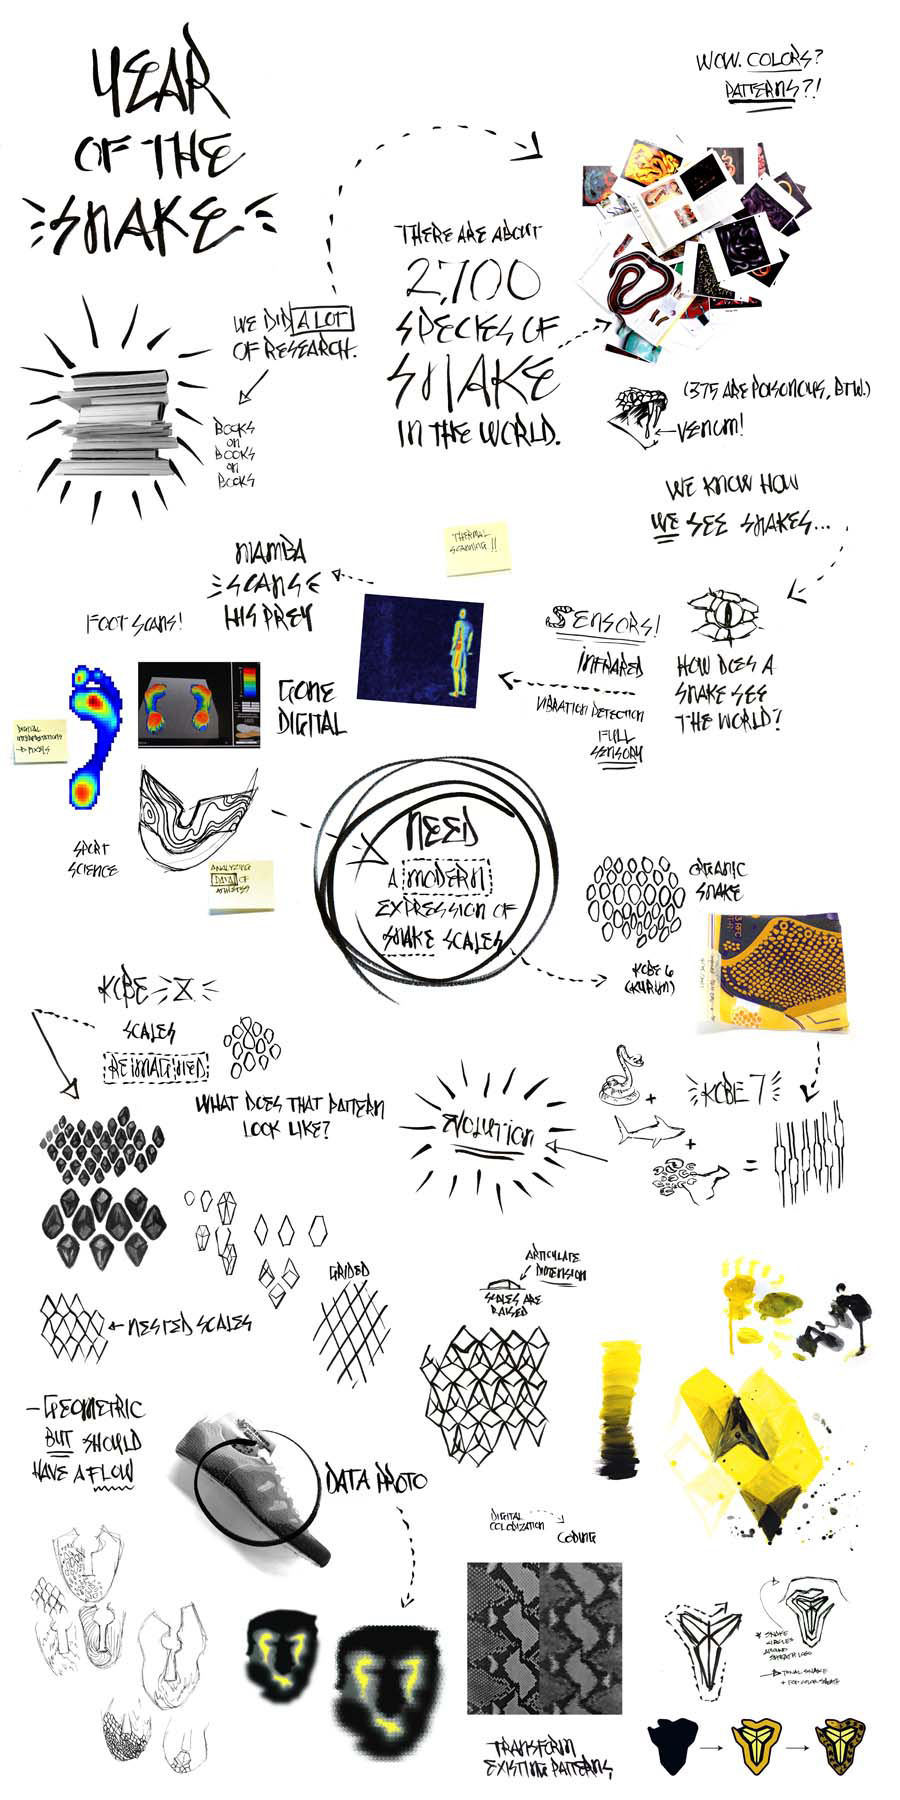 YEAR
OF THE
SNAKE
WOW. COLORS?
PATTERNS?!
WE DID A LOT
OF RESEARCH.
BOOKS
ON
BOOKS
ON
BOOKS
THERE ARE ABOUT
2,700
SPECIES OF
SNAKE
IN THE WORLD.
(375 ARE POISONOUS, BTW.)
VENOM!
WE KNOW HOW
WE SEE SNAKES...
HOW DOES A
SNAKE SEE
THE WORLD?
SENSORS!
INFRARED
VIBRATION DETECTION
FULL
SENSORY
THERMAL
SCANNING!!
MAMBA
SCANS
HIS PREY
FOOT SCANS!
GONE
DIGITAL
DIGITAL
INTERPRETATIONS
PIXELS
SPORT
SCIENCE
ANALYZING
DATA OF
ATHLETES
NEED
A MODERN
EXPRESSION OF
SNAKE SCALES
ORGANIC
SNAKE
KOBE 6
KOBE 7
+
+
=
EVOLUTION
KOBE X
SCALES
REIMAGINED
WHAT DOES THAT PATTERN
LOOK LIKE?
NESTED SCALES
GRIDED
ARTICULATE
DIMENSION
SCALES ARE
RAISED
- GEOMETRIC
BUT SHOULD
HAVE A FLOW
DATA PHOTO
DIGITAL
COLORIZATION
CODING
TRANSFORM
EXISTING PATTERNS
* SNAKE
CIRCLES
AROUND
SHEATH LOGO
TONAL SNAKE
+ POP COLOR SHEATH